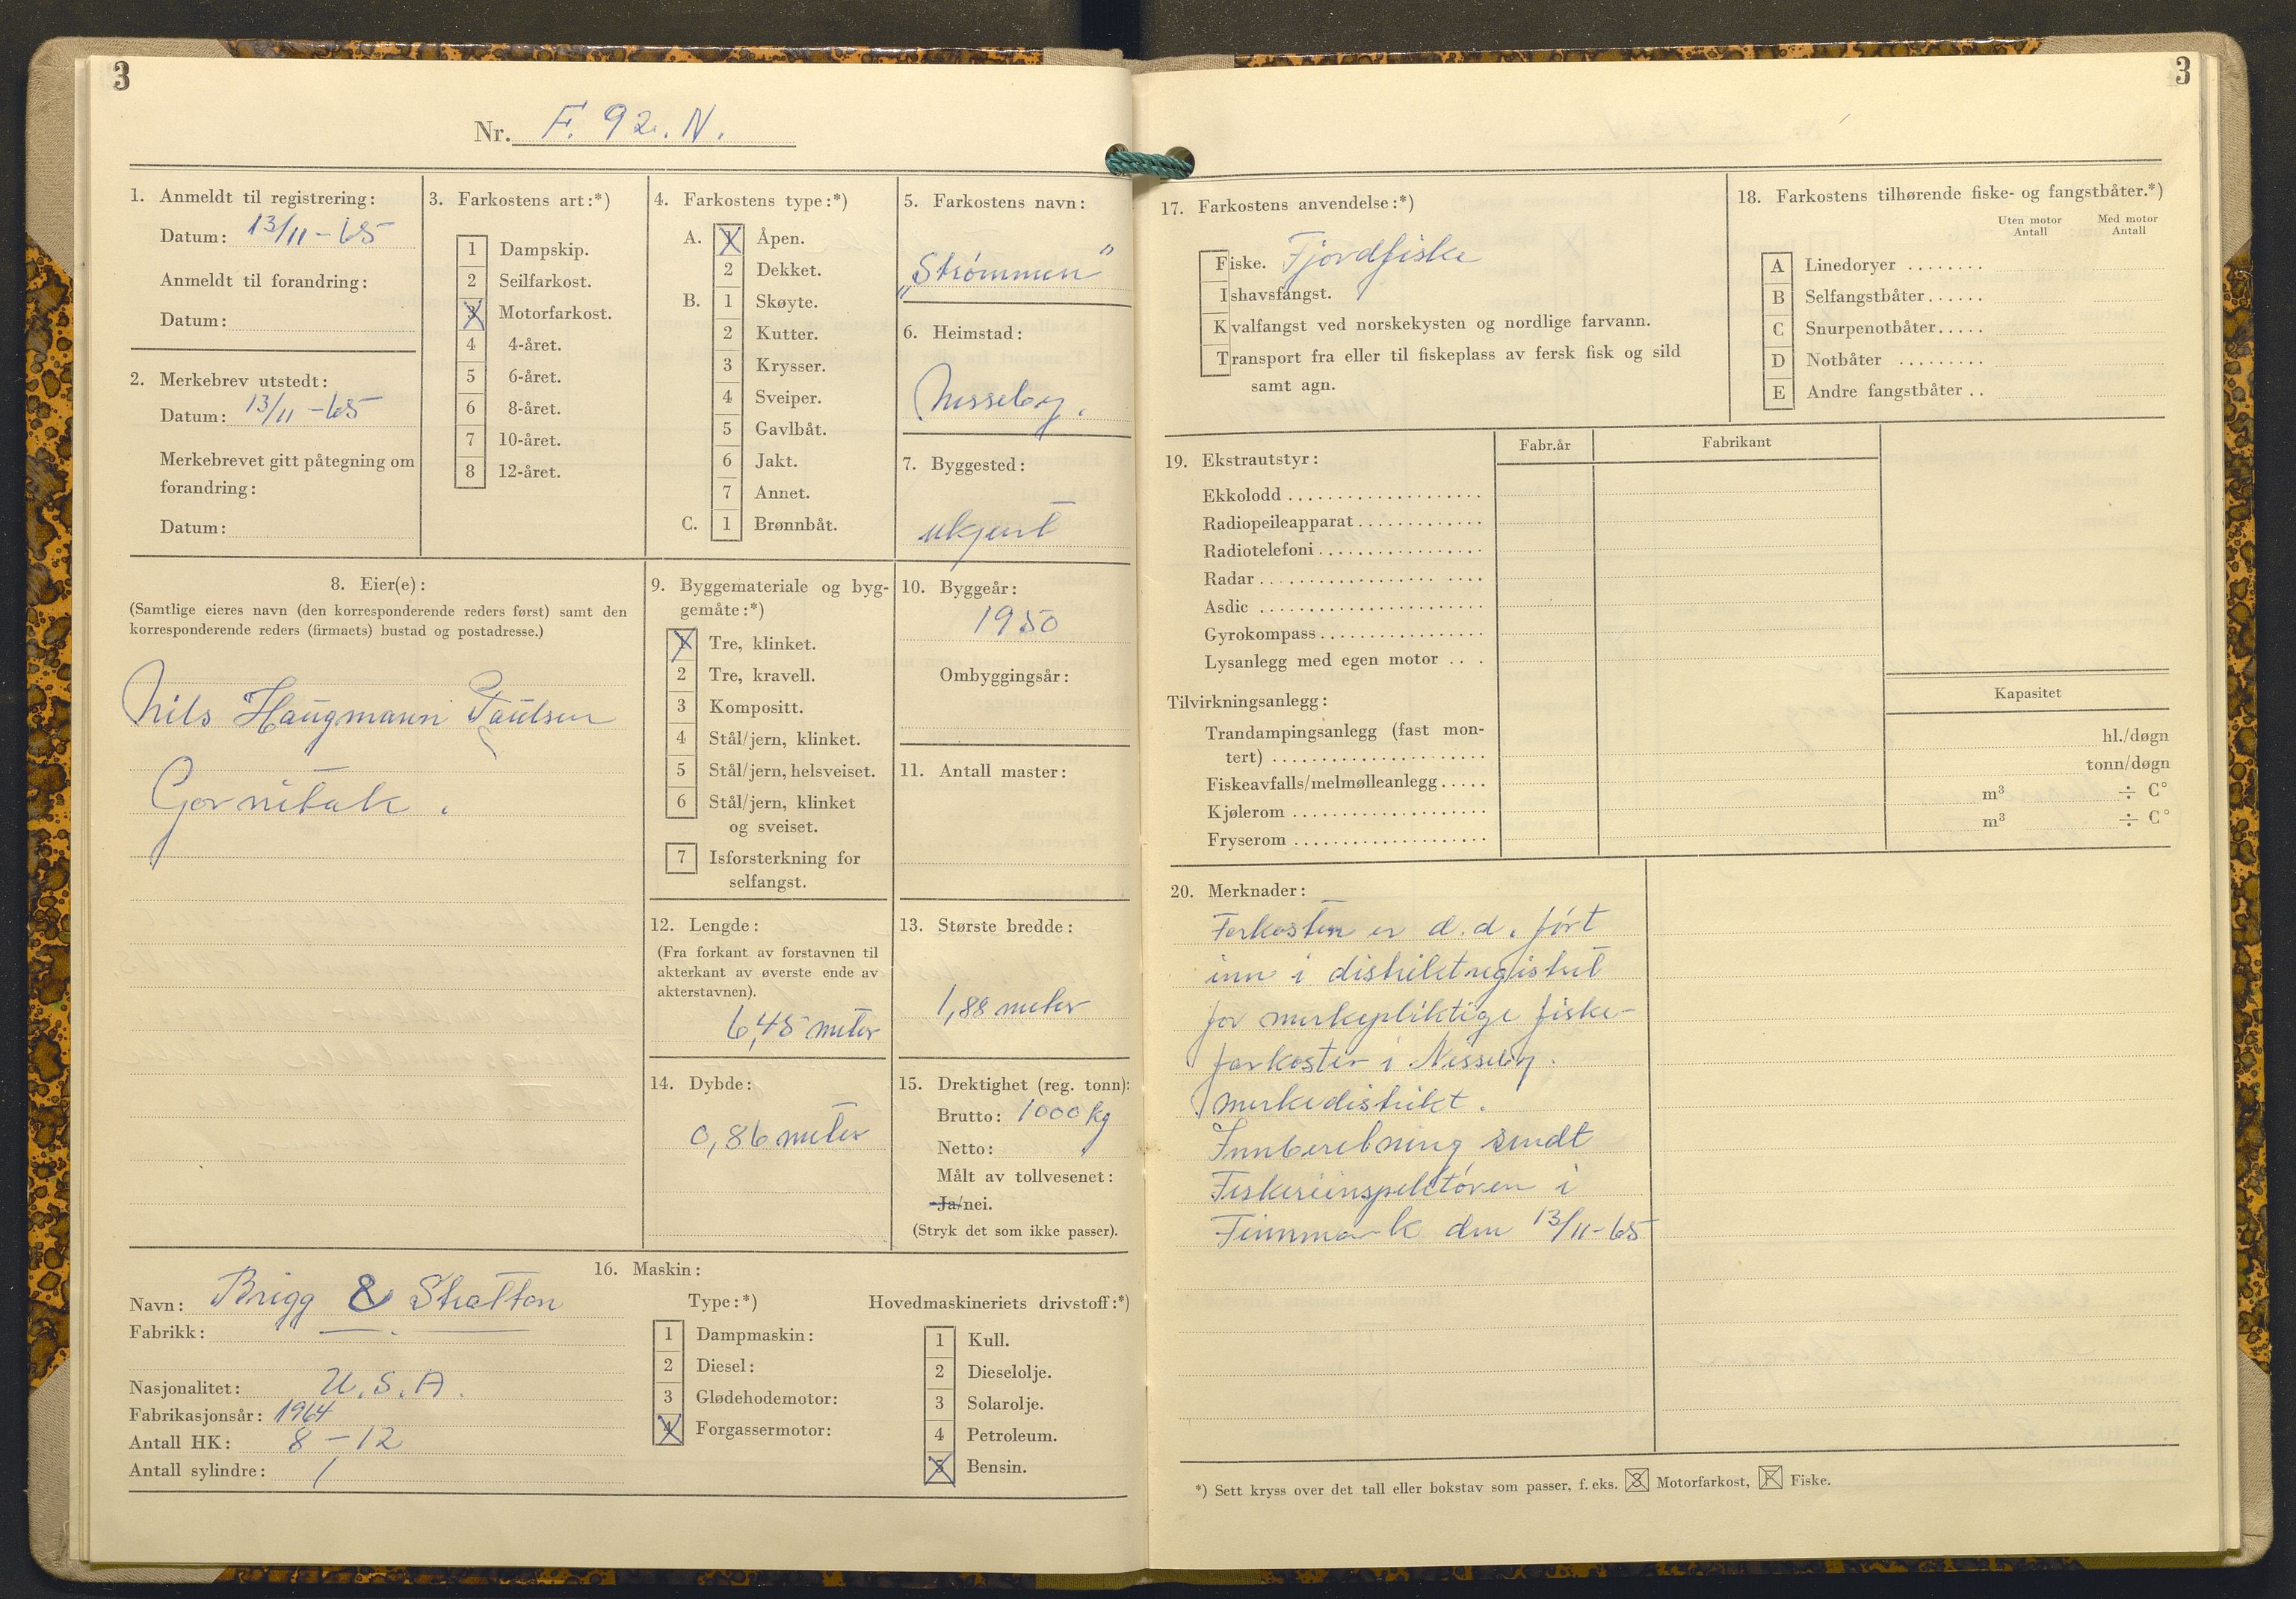 3
Nr. F. 92. N.
1. Anmeldt til registrering:
Datum: 13/11 - 65
Anmeldt til forandring:
Datum:
2. Merkebrev utstedt:
Datum: 13/11 - 65
Merkebrevet gitt påtegning om
forandring:
Datum:
3. Farkostens art:*)
1 Dampskip.
2 Seilfarkost.
3 Motorfarkost.
4 4-året.
5 6-året.
6 8-året.
7 10-året.
8 12-året.
4. Farkostens type:*)
A. 1 Åpen.
2 Dekket.
B. 1 Skøyte.
2 Kutter.
3 Krysser.
4 Sveiper.
5 Gavlbåt.
6 Jakt.
7 Annet.
C. 1 Brønnbåt.
5. Farkostens navn:
„Strømmen"
6. Heimstad:
Nesseby.
7. Byggested:
ukjent
8. Eier(e):
(Samtlige eieres navn (den korresponderende reders først) samt den
korresponderende reders (firmaets) bustad og postadresse.)
Nils Haugmann Paulsen
Gornitak.
9. Byggemateriale og byg-
gemåte:*)
1 Tre, klinket.
2 Tre, kravell.
3 Kompositt.
4 Stål/jern, klinket.
5 Stål/jern, helsveiset.
6 Stål/jern, klinket
og sveiset.
7 Isforsterkning for
selfangst.
10. Byggeår:
1950
Ombyggingsår:
11. Antall master:
12. Lengde:
(Fra forkant av forstavnen til
akterkant av øverste ende av
akterstavnen).
6,45 meter
13. Største bredde:
1,88 meter
14. Dybde:
0,86 meter
15. Drektighet (reg. tonn):
Brutto: 1000 kg
Netto:
Målt av tollvesenet:
Ja/nei.
(Stryk det som ikke passer).
16. Maskin:
Navn: Brigg & Stratton
Fabrikk: — . —
Nasjonalitet: U.S.A.
Fabrikasjonsår: 1964
Antall HK: 8 - 12
Antall sylindre: 1
Type:*)
1 Dampmaskin:
2 Diesel:
3 Glødehodemotor:
4 Forgassermotor:
Hovedmaskineriets drivstoff:*)
1 Kull.
2 Dieselolje.
3 Solarolje.
4 Petroleum.
5 Bensin.
3
17. Farkostens anvendelse:*)
Fiske. Fjordfiske
Ishavsfangst.
Kvalfangst ved norskekysten og nordlige farvann.
Transport fra eller til fiskeplass av fersk fisk og sild
samt agn.
18. Farkostens tilhørende fiske- og fangstbåter.*)
Uten motor Med motor
Antall Antall
A Linedoryer ........
B Selfangstbåter......
C Snurpenotbåter.....
D Notbåter .........
E Andre fangstbåter ..
19. Ekstrautstyr: Fabr.år Fabrikant
Ekkolodd ....................
Radiopeileapparat .............
Radiotelefoni .................
Radar ......................
Asdic .......................
Gyrokompass .................
Lysanlegg med egen motor ...
Tilvirkningsanlegg: Kapasitet
Trandampingsanlegg (fast mon-
tert) ...................... hl./døgn
Fiskeavfalls/melmølleanlegg ..... tonn/døgn
Kjølerom .................... m³ ÷ C°
Fryserom .................... m³ ÷ C°
20. Merknader:
Farkosten er d.d. ført
inn i distriktregistret
for merkepliktige fiske-
farkoster i Nesseby.
merkedistrikt.
Innberetning sendt
Fiskeriinspektøren i
Finnmark den 13/11-65
*) Sett kryss over det tall eller bokstav som passer, f. eks. 3 Motorfarkost, F Fiske.